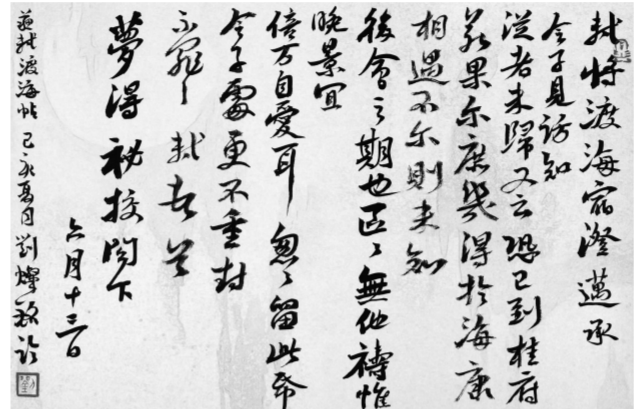 軾將渡海宿澄邁承
令子見訪知
從者未歸又云恐已到桂府
若果尔庶幾得於海康
相遇不尔則未知
後會之期也區々無他禱惟
晚景宜
倍万自愛耳怱々留此帋
令子處更不重封
不罪々軾頓首
夢得祕校閣下
六月十三日
蘇軾渡海帖 己亥夏月劉燦銘臨